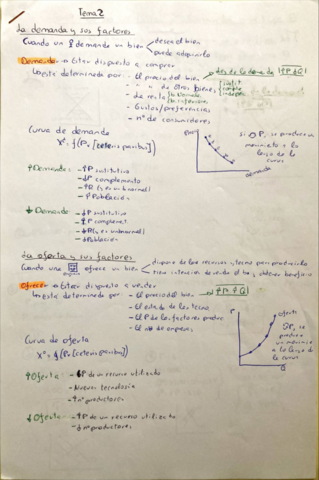 Tema 2
La demanda y sus factores
Cuando un demanda un bien desea el bien
puede adquirirlo
Demanda → Estar dispuesto a comprar
Está determinada por: - El precio del bien → ley de la demanda ↑P ↓Q
- " " de otros bienes
- de renta
- Gustos/preferencias
- nº de consumidores
Curva de demanda
Xº = f(Px [ceteris paribus])
si P, se produce un
movimiento a lo
largo de la
curva
demanda
↑Demanda: - ↑P sustitutivo
- ↓P complemento
- ↑R (si es un b normal)
- ↑Población
↓Demanda: - ↓P sustitutivo
- ↑P complement
- ↓R (si es un b normal)
- ↓Población
La oferta y sus factores
Cuando una ofrece un bien dispone de los recursos y tecno para producirlo
tiene intención de vender el bien, obtener beneficio
Ofrecer → Estar dispuesto a vender
Está determinada por: - El precio del bien → ↑P ↑Q
- El estado de la tecno
- El P de los factores produc
- El nº de empresas
Curva de oferta
Xº = f(Px [ceteris paribus])
P
oferta
P, se
produce
un movimient
a lo largo de
la curva
Q
↑Oferta: - ↓P de un recurso utilizado
- Nueva tecnología
- ↑nº productores
↓Oferta: - ↑P de un recurso utilizado
- ↓nº productores